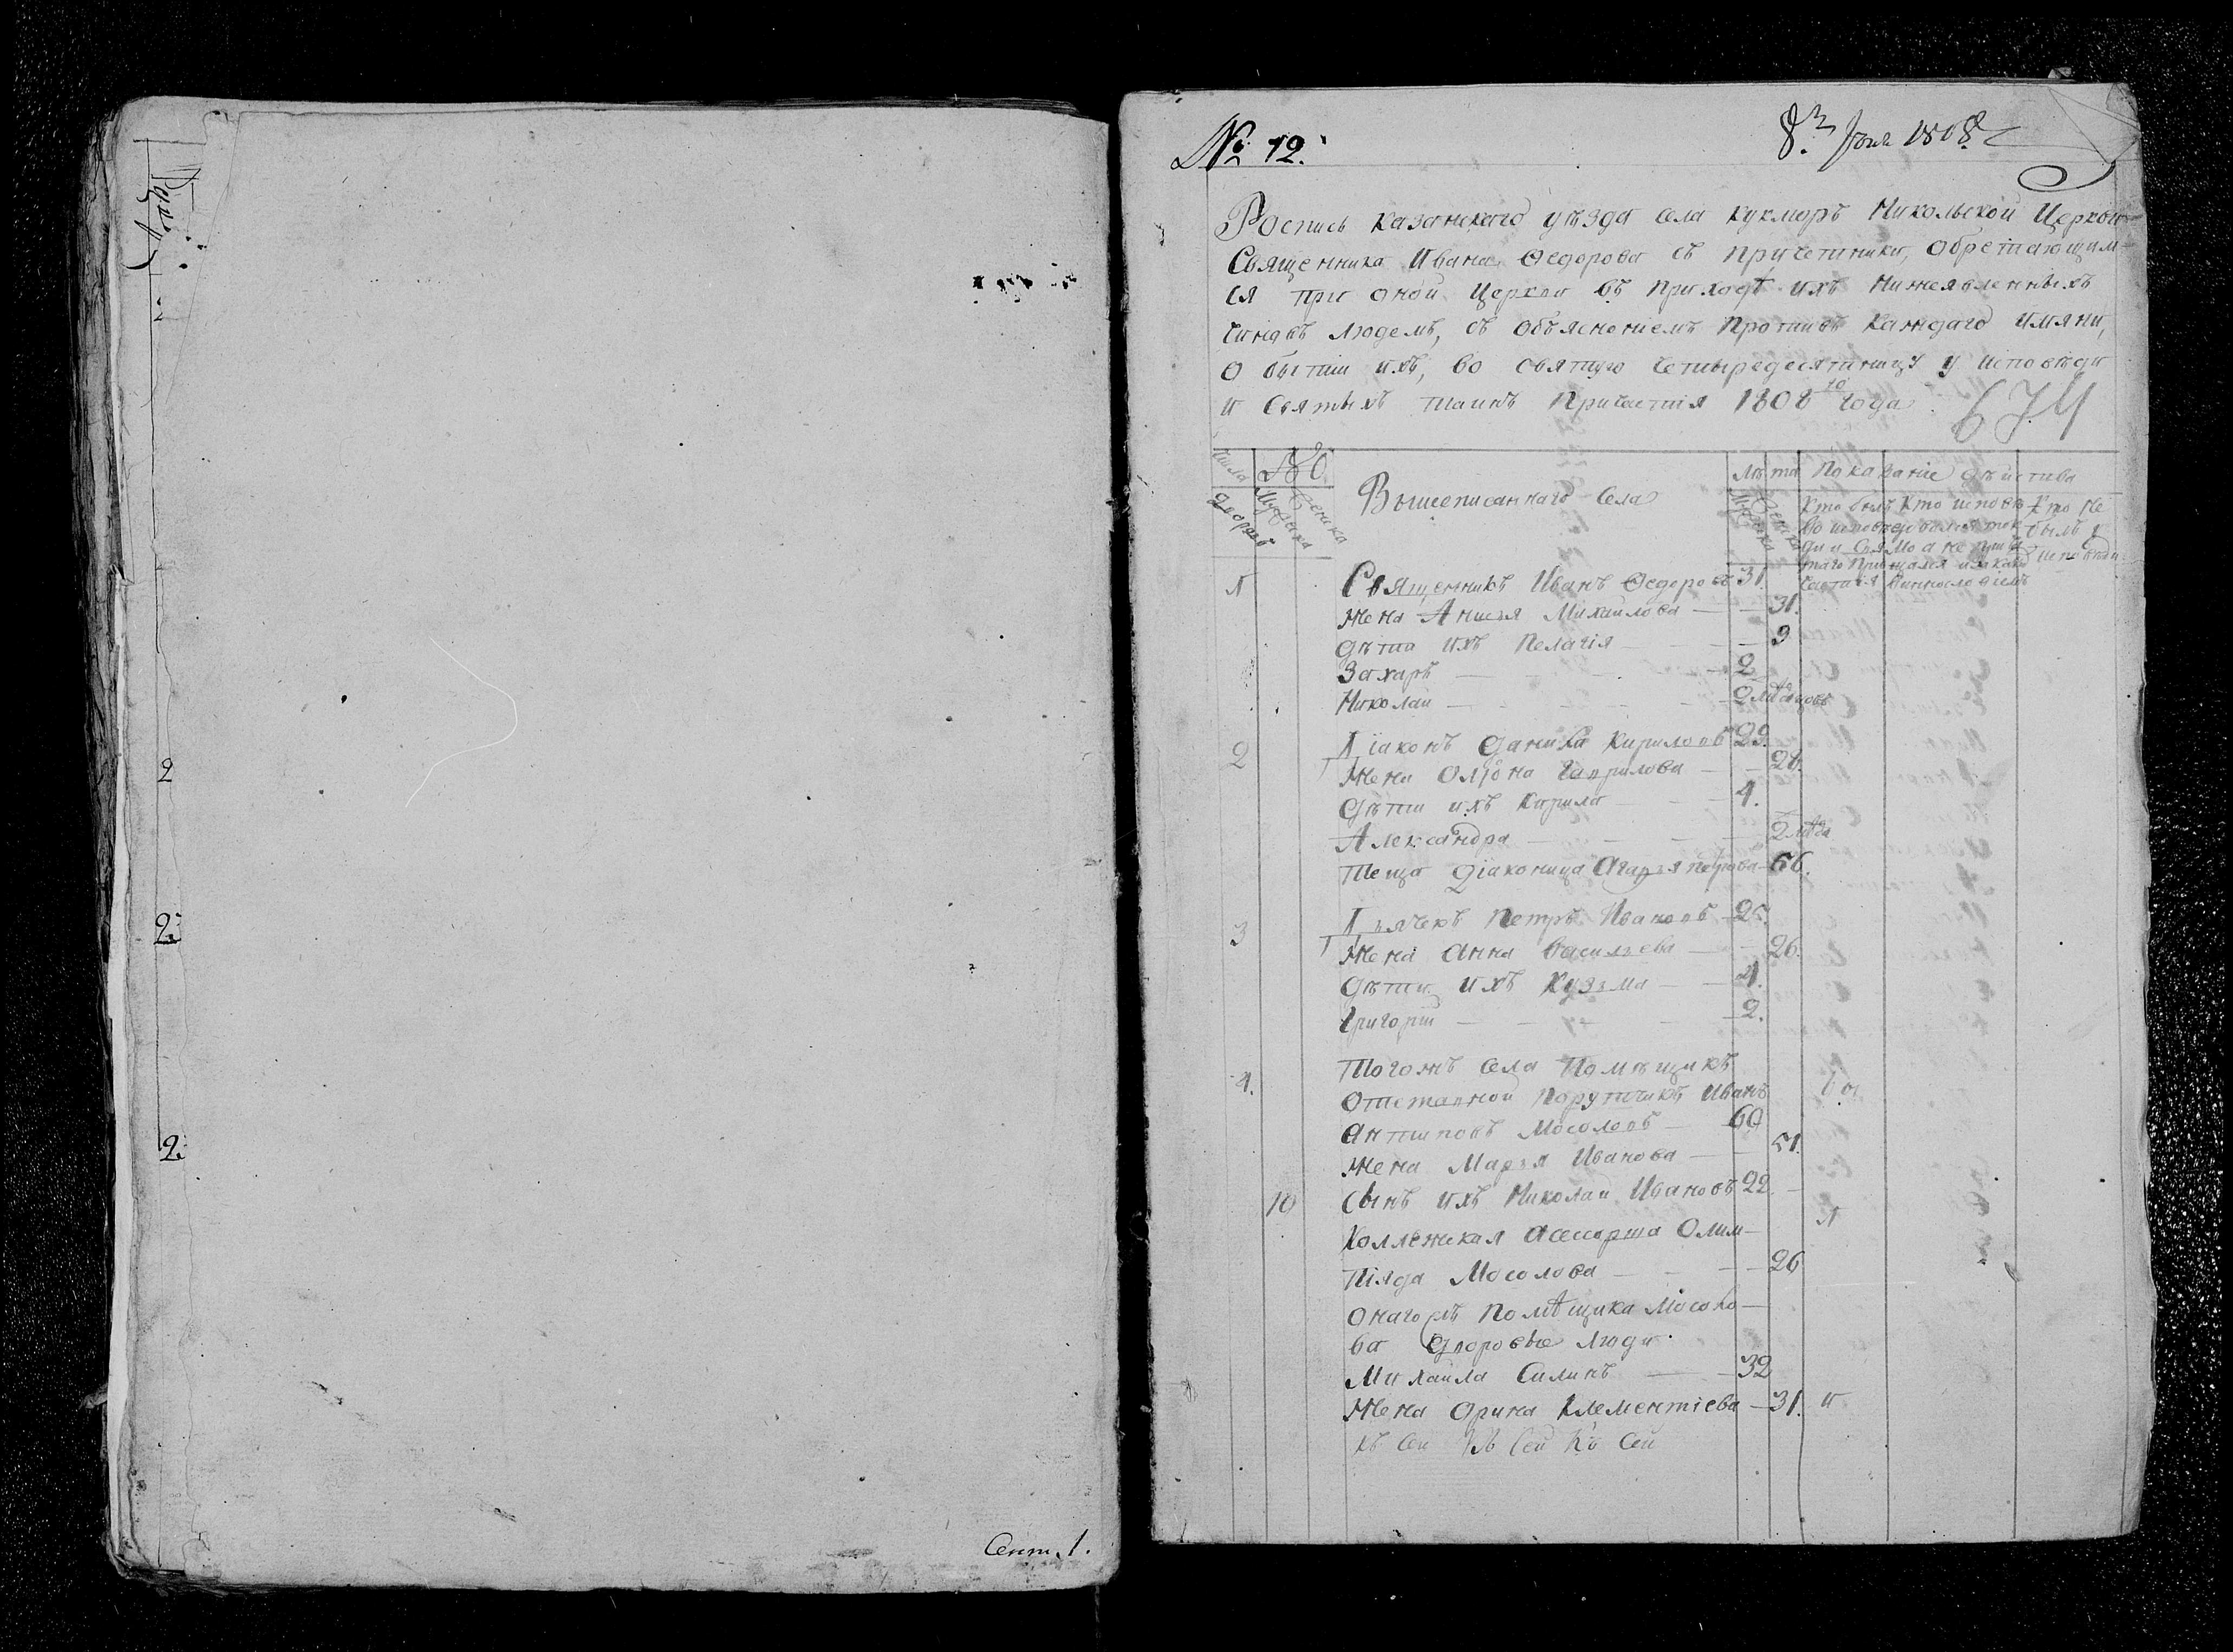 2
2.
2.
Сент. 1.
№ 12.
8. Июня 1808
Роспись казанскаго уѣзда села кукморъ Никольской Церкви
Священника Ивана Ѳедорова съ причетники, обретающим-
ся при оной церкви въ приходѣ ихъ нижеявленныхъ
чиновъ людемъ, съ объясненіемъ противъ каждаго имяни,
о бытіи ихъ, во святую четыредесятницу у исповѣди
и святыхъ таинъ причастія 1808 года
Числа №
Дворовъ Мужска Женска
Вышеписаннаго Села
Лѣта Показаніе дѣйства
Мужска Женска
Кто былъ Кто исповѣ Кто не
былъ у
исповѣди
1 Священникъ Иванъ Ѳедоровъ 31.
жена Анисья Михайлова — 31.
дѣти ихъ Пелагія — 9
Захаръ — 2
Николай —
2 Діаконъ Данила Кириловъ 29.
Жена Олiона Гаврилова — 28.
Дѣти ихъ Кирила — 4.
Александра — 2
Теща діаконица Агафья петрова 66.
3 Дьячекъ Петръ Ивановъ 25.
Жена Анна Васильева — 26.
дѣти ихъ Кузьма — 4.
Григорій — 2.
4. Тогожъ села Помѣщикъ
отставной Порутчикъ Иванъ
Антиповъ Мосоловъ — 60
жена Марья Иванова — 51.
10 сынъ ихъ Николай Ивановъ 22.
Коллежская асессорша Олим-
піяда Мосолова — 26
онагожъ помѣщика Мосоло-
ва дворовые люди
Михайла Силинъ — 32
Жена Орина Клементіева — 31.
къ сей къ сей къ сей